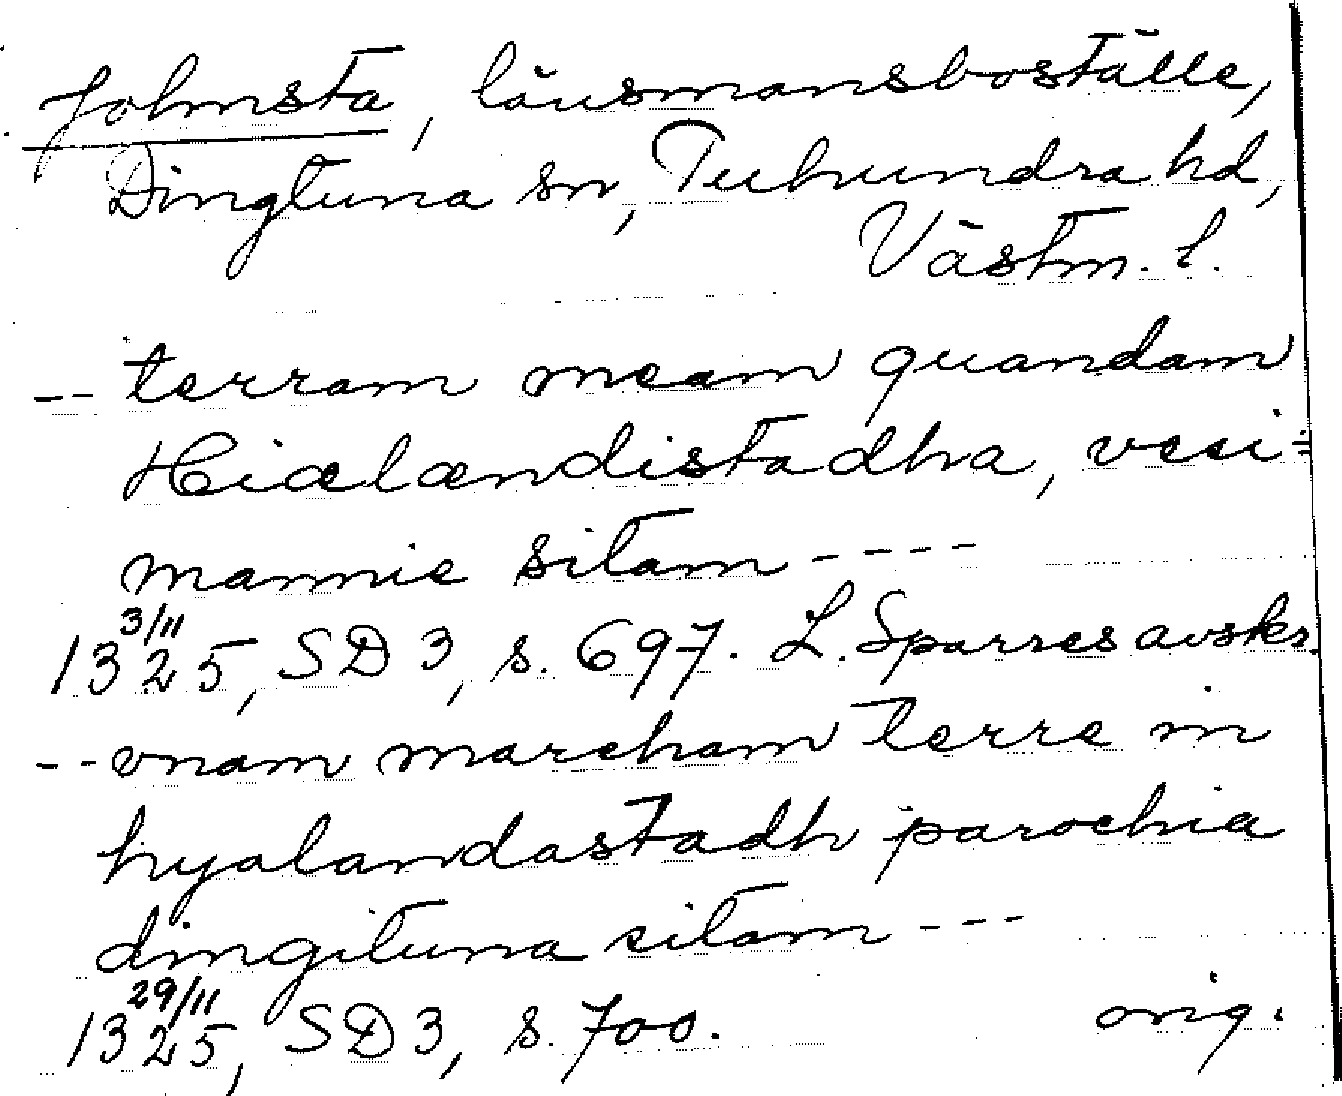 Johnsta, länsmansboställe,
Dingtuna sn, Tuhundra hd,
Västm. l.
-- terram meam quandam
Hiælændistadha, vesi=
mannie sitam ----
1325 3/11, SD 3, s. 697. L. Sparres avskr.
-- vnam marcham terre in
hyalandastadh parochia
dingituna sitam ---
1325 29/11, SD 3, s. 700. orig.